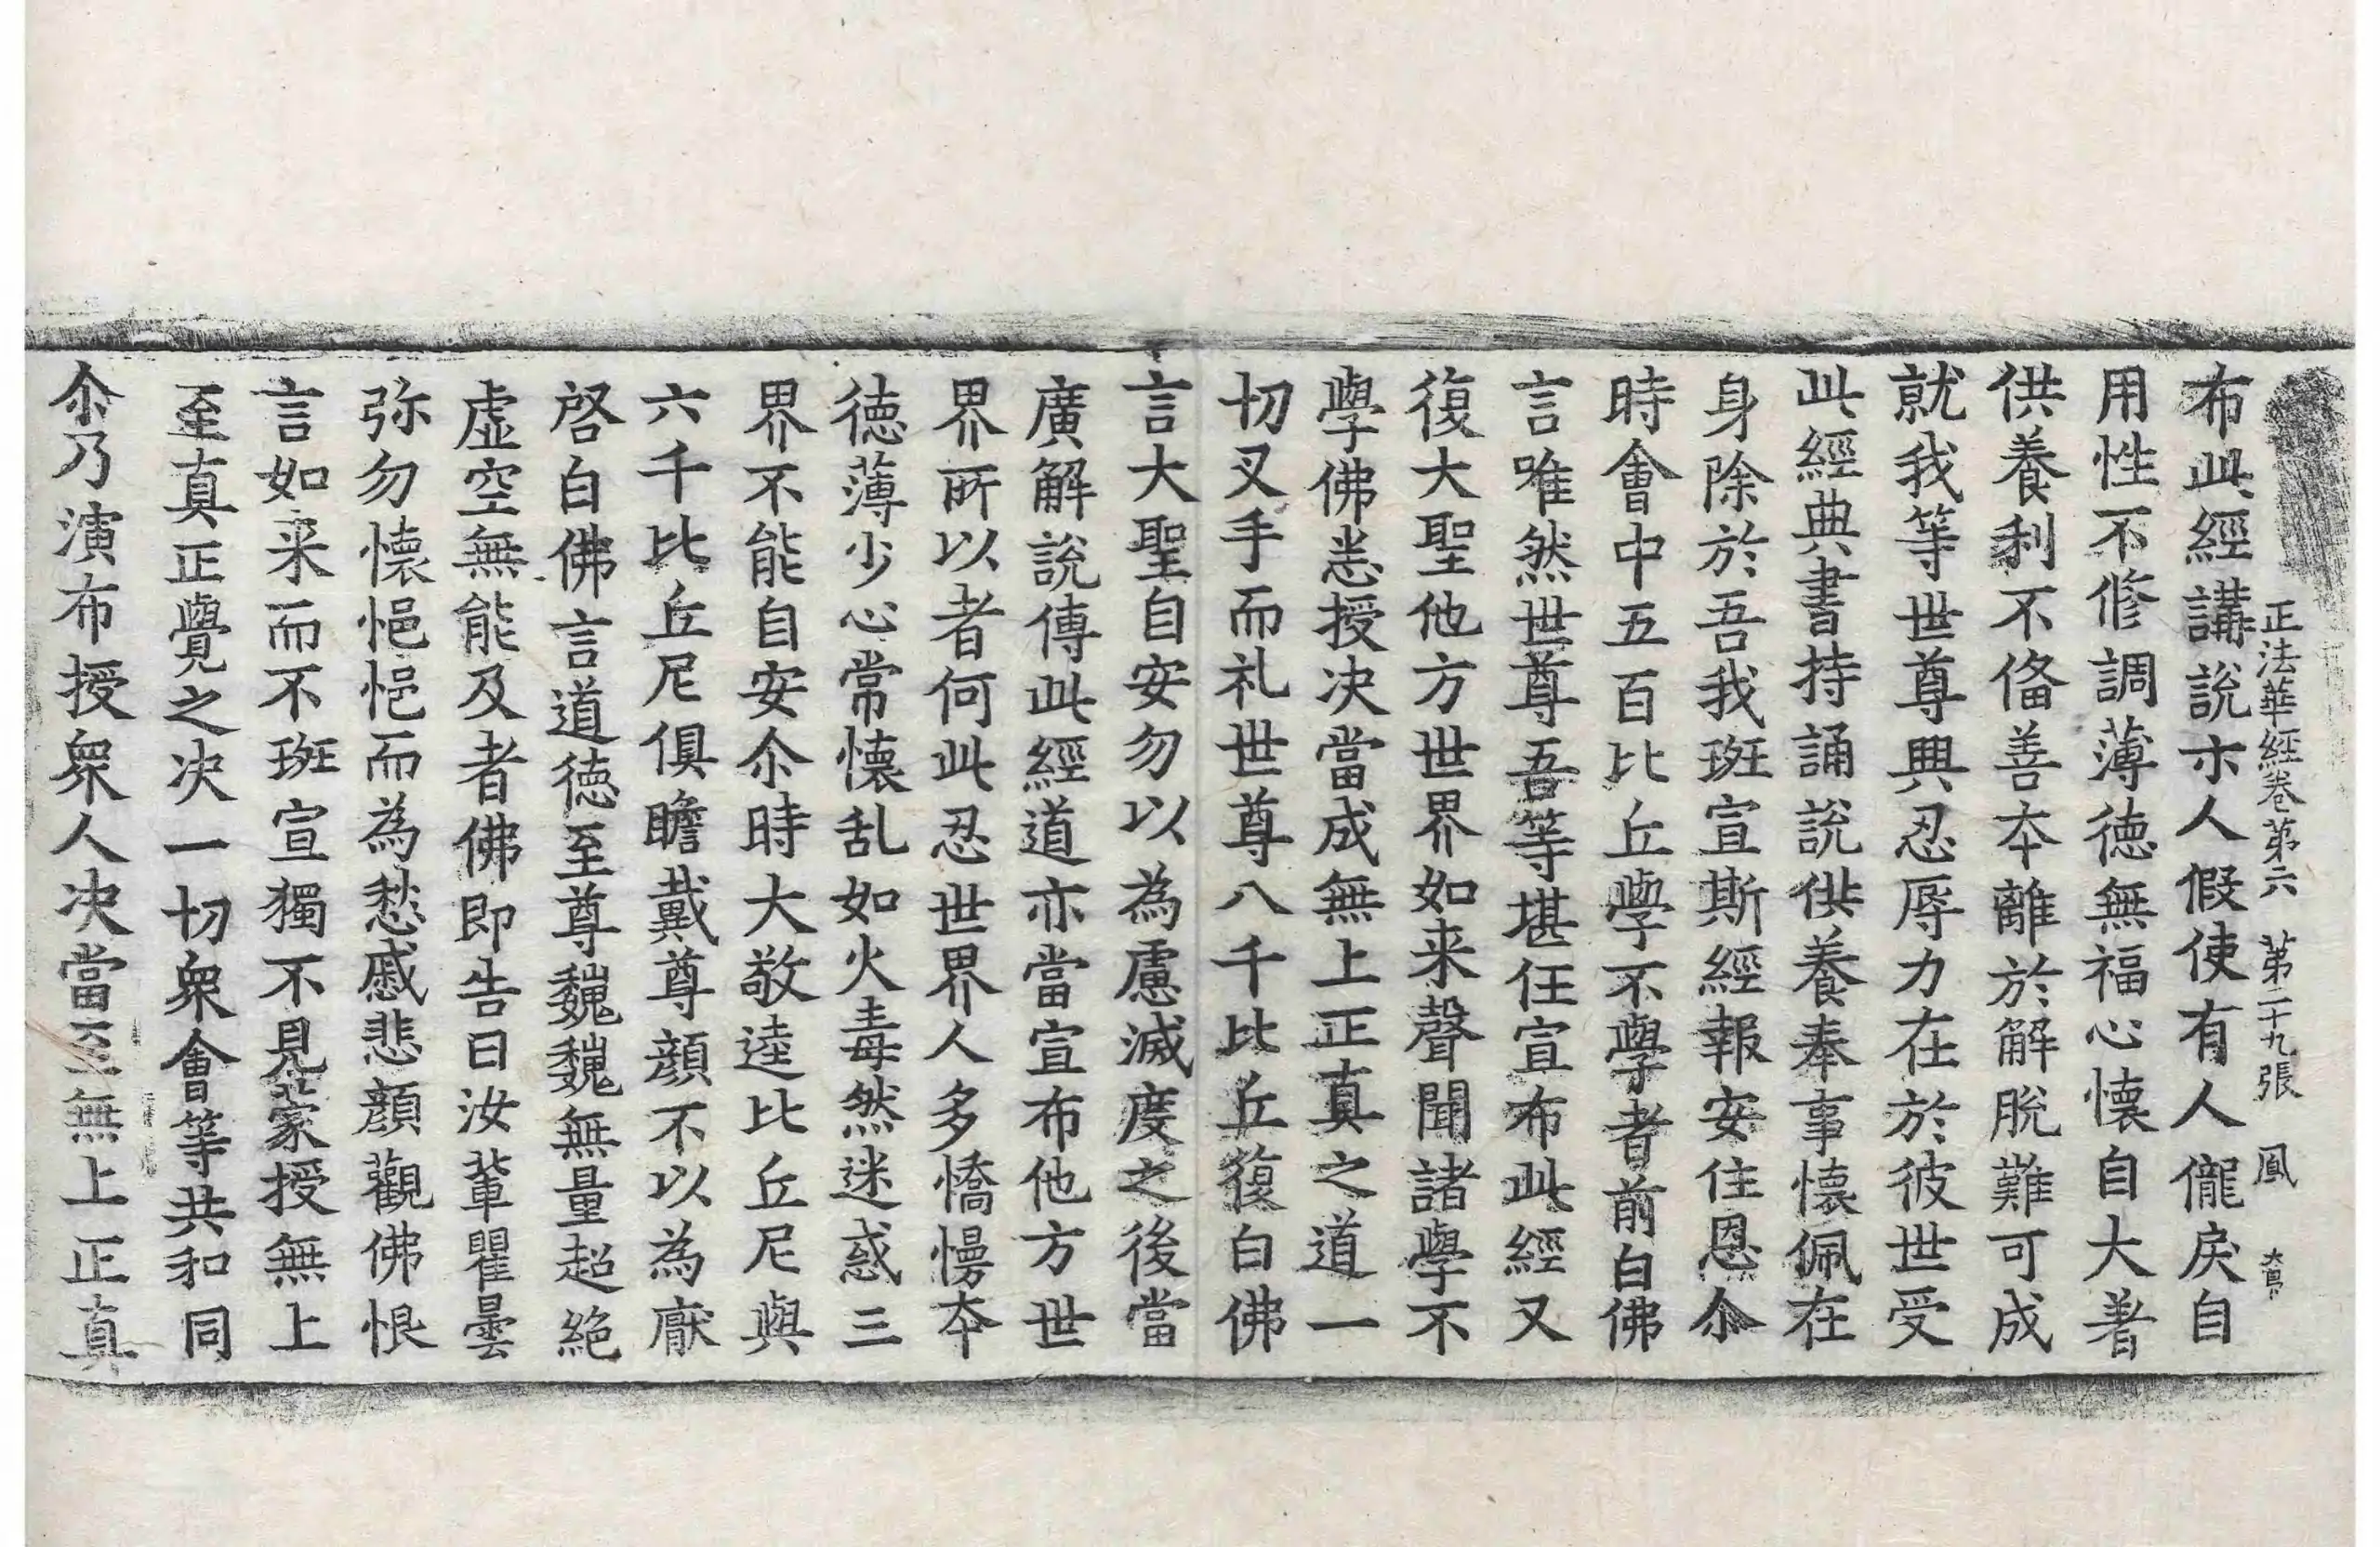 正法華經卷第六 第二十九張 鳳
布此經講說示人假使有人儱戾自
用性不修調薄德無福心懷自大著
供養利不俻善夲離於解脫難可成
就我等世尊興忍辱力在於彼世受
此經典書持誦說供養奉事懷佩在
身除於吾我班宣斯經報安住恩尒
時會中五百比丘學不學者前白佛
言唯然世尊吾等堪任宣布此經又
復大聖他方世界如来聲聞諸學不
學佛悉授决當成無上正真之道一
切叉手而礼世尊八千比丘復白佛
言大聖自安勿以為慮滅度之後當
廣解說傳此經道亦當宣布他方世
界所以者何此忍世界人多憍慢夲
德薄少心常懷乱如火毒然迷惑三
界不能自安尒時大敬逵比丘尼與
六千比丘尼俱瞻戴尊顔不以為厭
啓白佛言道德至尊巍巍無量超絕
虛空無能及者佛即告曰汝輩瞿曇
弥勿懷悒悒而為愁慼悲顔觀佛恨
言如来而不班宣獨不見蒙授無上
至真正覺之决一切衆會等共和同
尒乃演布授衆人决當至無上正真